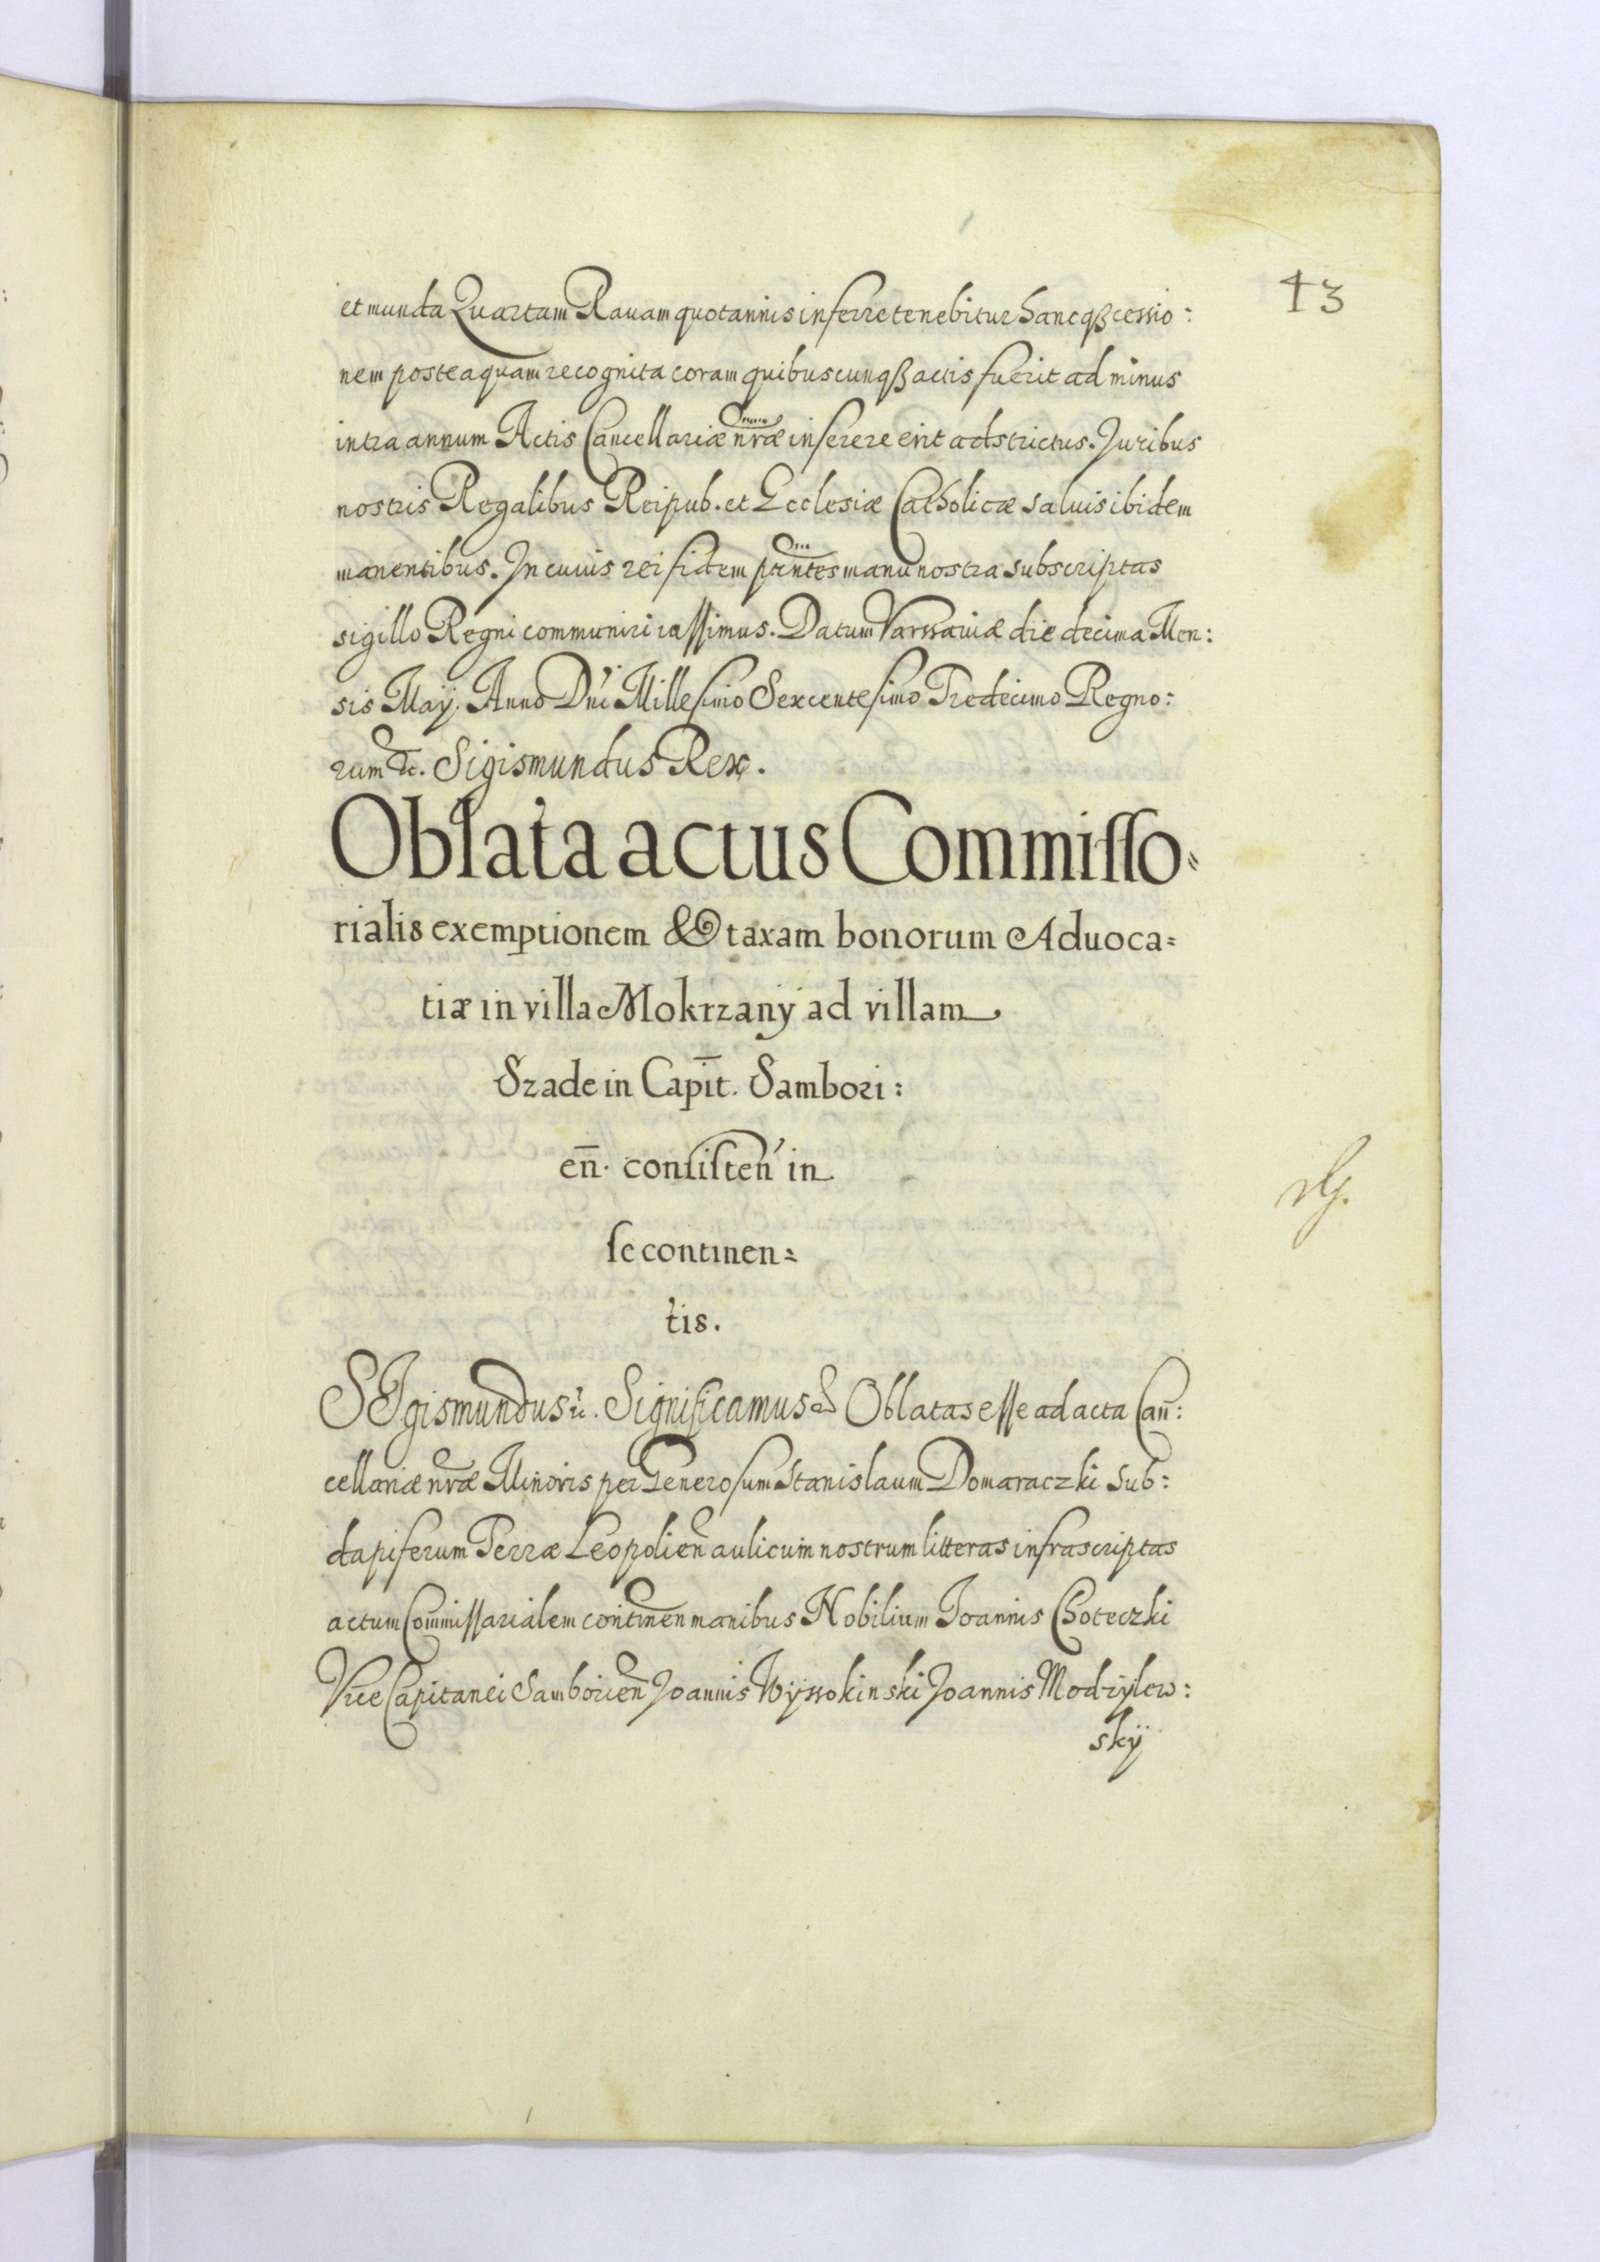 43
et munda Quartam Rauam quotannis inferre tenebitur hancqꝫ cessio:
nem posteaquam recognita coram quibuscunqꝫ actis fuerit ad minus
intra annum Actis Cancellariæ nræ inserere erit adstrictus. Juribus
nostris Regalibus Reipub. et Ecclesiæ Catholicæ saluis ibidem
manentibus. In cuius rei fidem pñtes manu nostra subscriptas
sigillo Regni communiri iussimus. Datum Varssauiæ die decima Men:
sis Maij. Anno Dñi Millesimo Sexcentesimo Tredecimo Regno:
rum &c. Sigismundus Rex.
Oblata actus Commisso=
rialis exemptionem & taxam bonorum Aduoca=
tiæ in villa Mokrzany ad villam
Szade in Capit̅. Sambori:
en̅. consisten̅ in
se continen=
tis.
SIgismundus &c. Significamus &c Oblatas esse ad acta Can̅:
cellariæ nræ Minoris per Generosum Stanislaum Domaraczki Sub:
dapiferum Terræ Leopolien̅ aulicum nostrum litteras infrascriptas
actum Com̅issarialem continen̅ manibus Nobilium Joannis Choteczki
Vice Capitanei Samborien̅ Joannis Wyssokinski Joannis Modrzylew:
skÿ